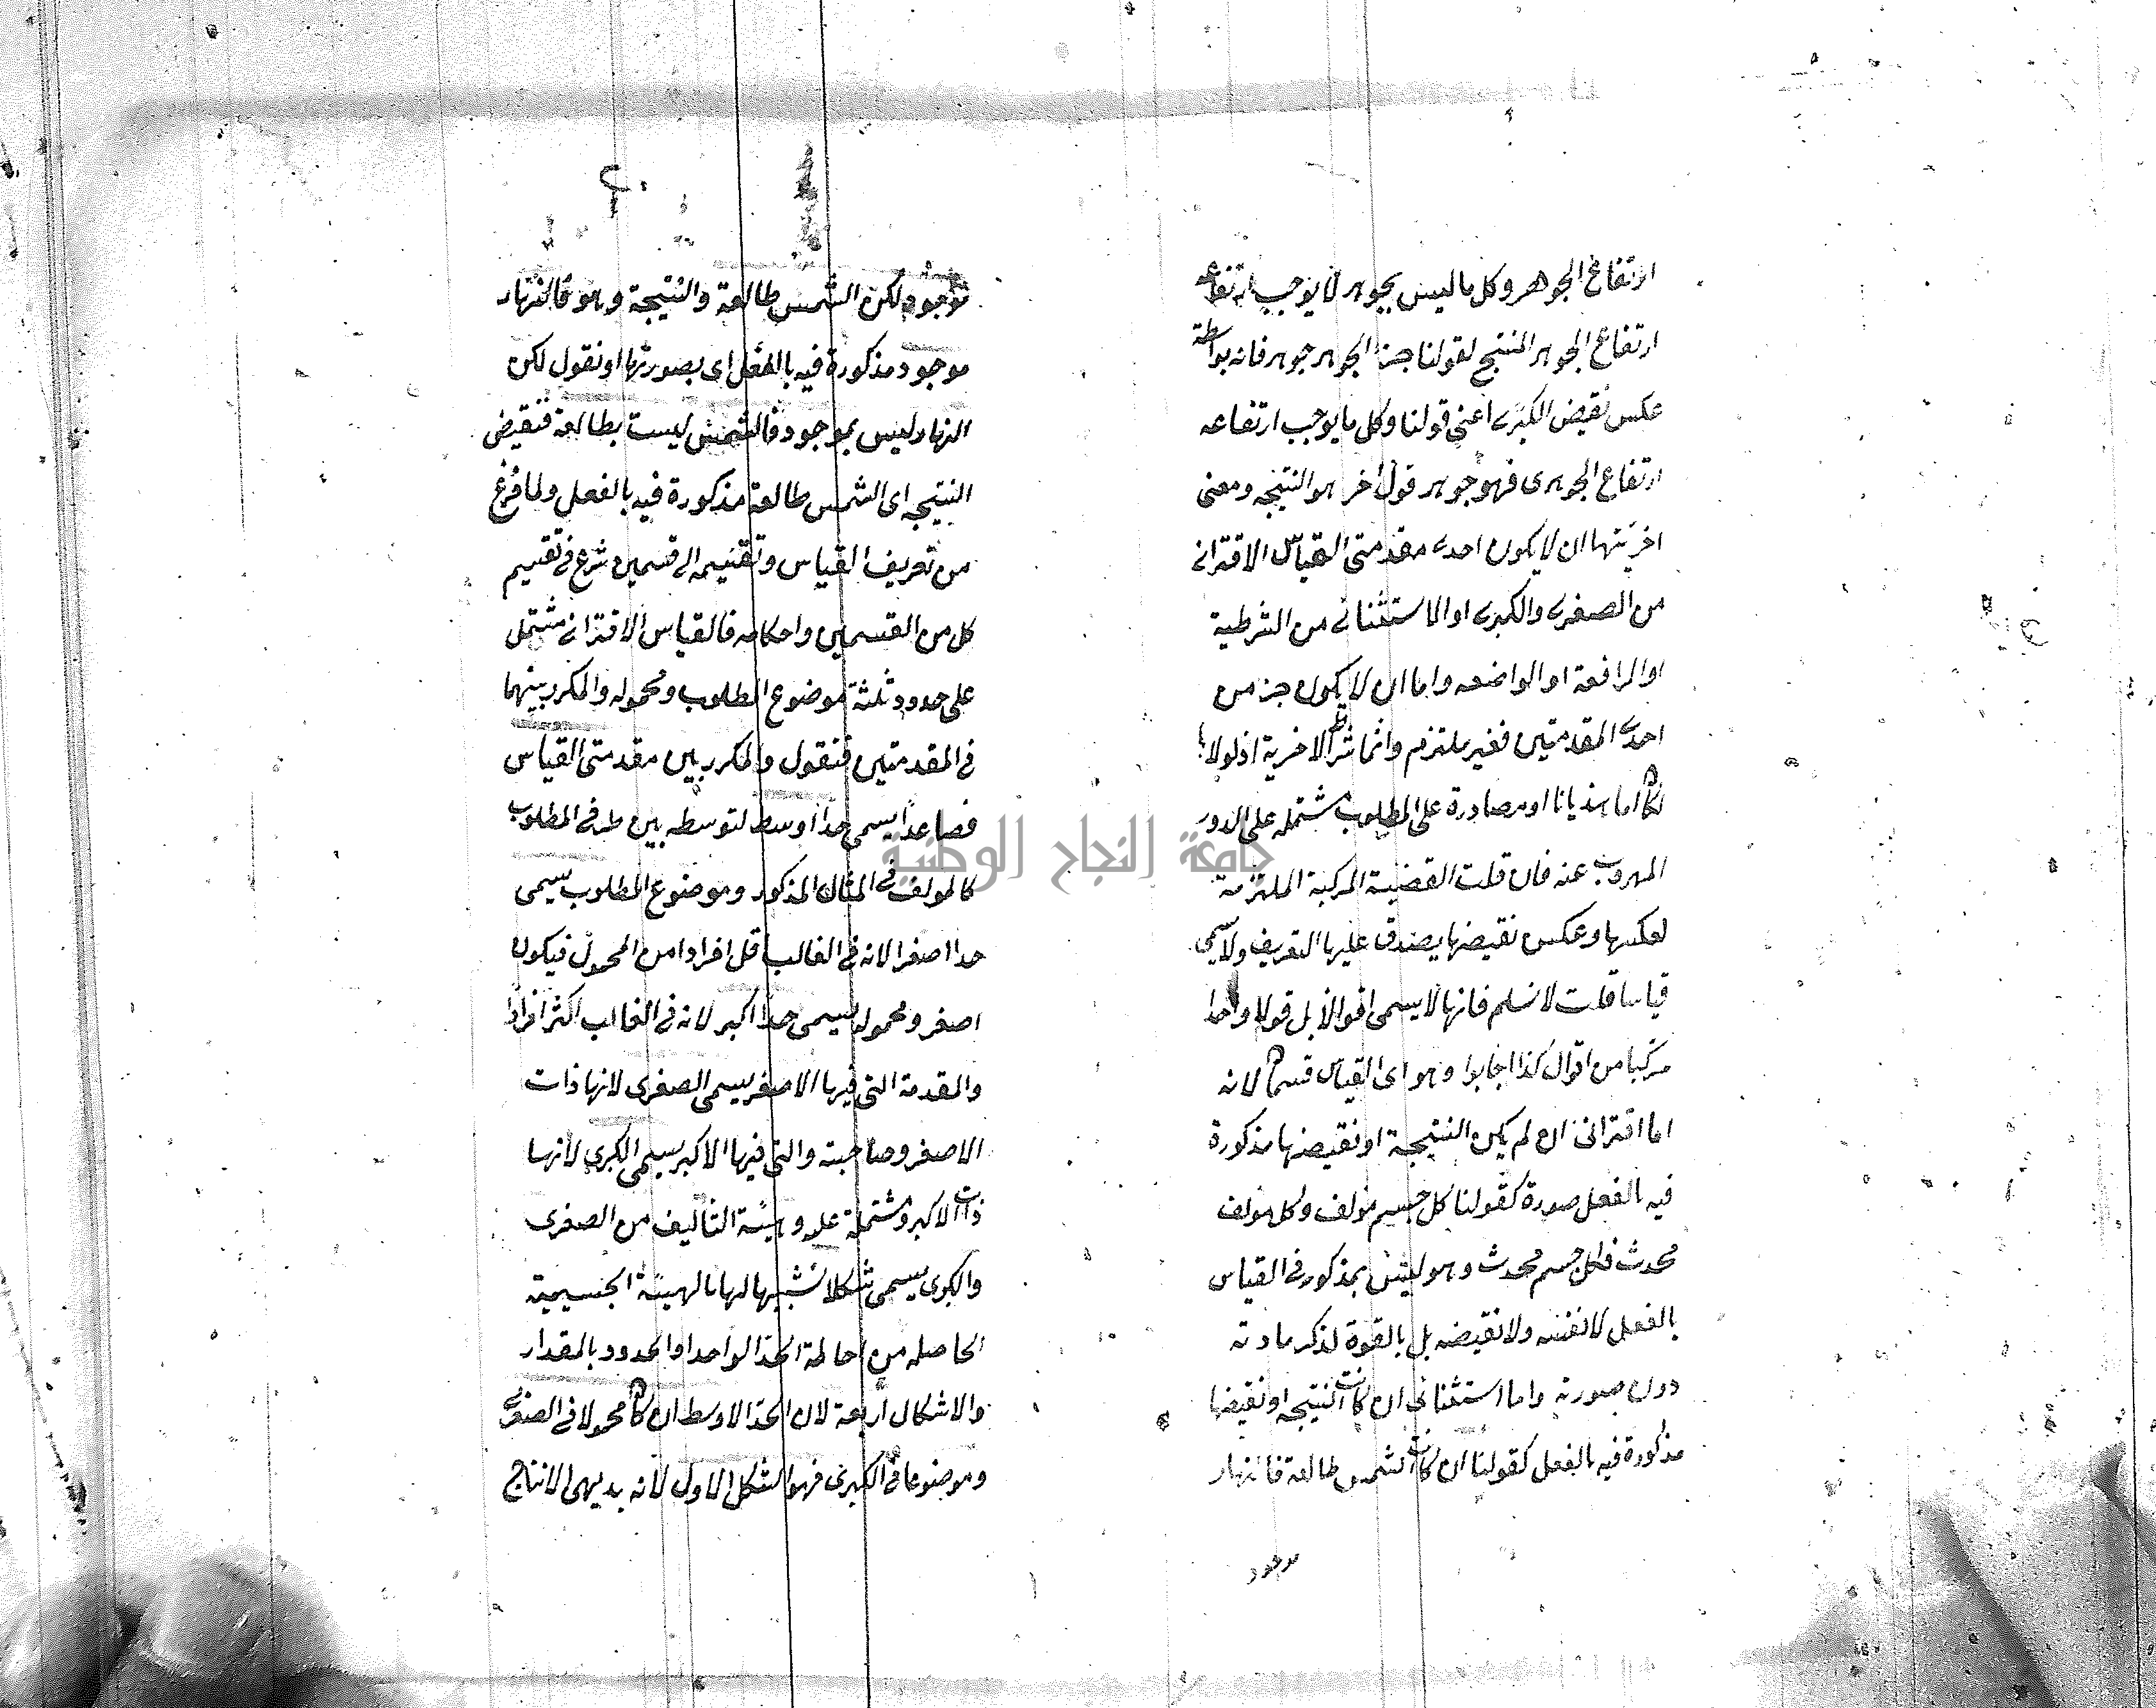 ارتفاع الجوهر وكل ما ليس بجوهر لا يوجب ارتفاعه
ارتفاع الجوهر المنتج لقولنا جزء الجوهر جوهر فانه بواسطة
عكس نقيض الكبرى اعنى قولنا وكل ما يوجب ارتفاعه
ارتفاع الجوهرى فهو جوهر قول اخر هو النتيجه ومعنى
اخريتها ان لا يكون احدى مقدمتى القياس الاقترانى
من الصغرى والكبرى او الاستثنائى من الشرطية
او الرافعة او الواضعه واما ان لا يكون جزء من
احدى المقدمتين فغير ملتزم وانما شرط الاخرية اذ لولاها
لكان اما هذيانا او مصادرة على المطلوب مشتمله على الدور
المهروب عنه فان قلت القضية المركبة الملتزمة
لعكسها وعكس نقيضها يصدق عليها التعريف ولا يسمى
قياسا قلت لا نسلم فانها لا يسمى اقوالا بل قولا واحدا
مركبا من اقوال كذا اجابوا وهو اى القياس قسمان لانه
اما اقترانى ان لم يكن النتيجة او نقيضها مذكورة
فيه بالفعل صورة كقولنا كل جسم مؤلف وكل مؤلف
محدث فكل جسم محدث وهو ليس بمذكور فى القياس
بالفعل لا نفسه ولا نقيضه بل بالقوة لذكر مادته
دون صورته واما استثنائى ان كانت النتيجه او نقيضها
مذكورة فيه بالفعل كقولنا ان كانت الشمس طالعة فالنهار
موجود
٢٠
موجود لكن الشمس طالعة والنتيجة وهو فالنهار
موجود مذكورة فيه بالفعل اى بصورتها او نقول لكن
النهار ليس بموجود فالشمس ليست بطالعة فنقيض
النتيجه اى الشمس طالعة مذكورة فيه بالفعل ولما فرغ
من تعريف القياس وتقسيمه الى قسمين شرع فى تقسيم
كل من القسمين واحكامه فالقياس الاقترانى مشتمل
على حدود ثلثة موضوع المطلوب ومحموله والمكرر بينهما
فى المقدمتين فنقول والمكرر بين مقدمتى القياس
فصاعدا يسمى حدا اوسط لتوسطه بين طرفى المطلوب
كالمولف فى المثال المذكور وموضوع المطلوب يسمى
حدا اصغر لانه فى الغالب اقل افرادا من المحمول فيكون
اصغر ومحموله يسمى حدا اكبر لانه فى الغالب اكثر افرادا
والمقدمة التى فيها الاصغر يسمى الصغرى لانها ذات
الاصغر وصاحبته والتى فيها الاكبر يسمى الكبرى لانها
ذات الاكبر ومشتملة عليه وهيئة التأليف من الصغرى
والكبرى يسمى شكلا تشبيها لها بالهيئة الجسيمية
الحاصله من احاطة الحد الواحد او الحدود بالمقدار
والاشكال اربعة لان الحد الاوسط ان كان محمولا فى الصغرى
وموضوعا فى الكبرى فهو الشكل الاول لانه بديهى الانتاج
جامعة النجاح الوطنية